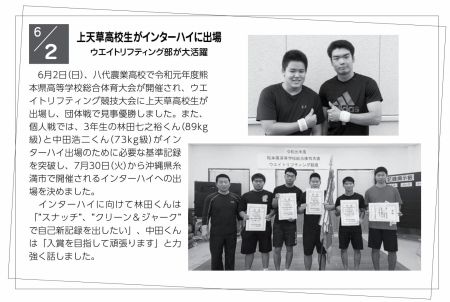 6/2
上天草高校生がインターハイに出場
ウエイトリフティング部が大活躍
6月2日(日)、八代農業高校で令和元年度熊
本県高等学校総合体育大会が開催され、ウエ
イトリフティング競技大会に上天草高校生が
出場し、団体戦で見事優勝しました。また、
個人戦では、3年生の林田七之裕くん(89kg
級)と中田浩二くん(73kg級)がイン
ターハイ出場のために必要な基準記録
を突破し、7月30日(火)から沖縄県糸
満市で開催されるインターハイへの出
場を決めました。
インターハイに向けて林田くんは
「"スナッチ"、"クリーン＆ジャーク"
で自己新記録を出したい」、中田くん
は「入賞を目指して頑張ります」と力
強く話しました。
adidas
令和元年度
熊本県高等学校総合体育大会
ウエイトリフティング競技